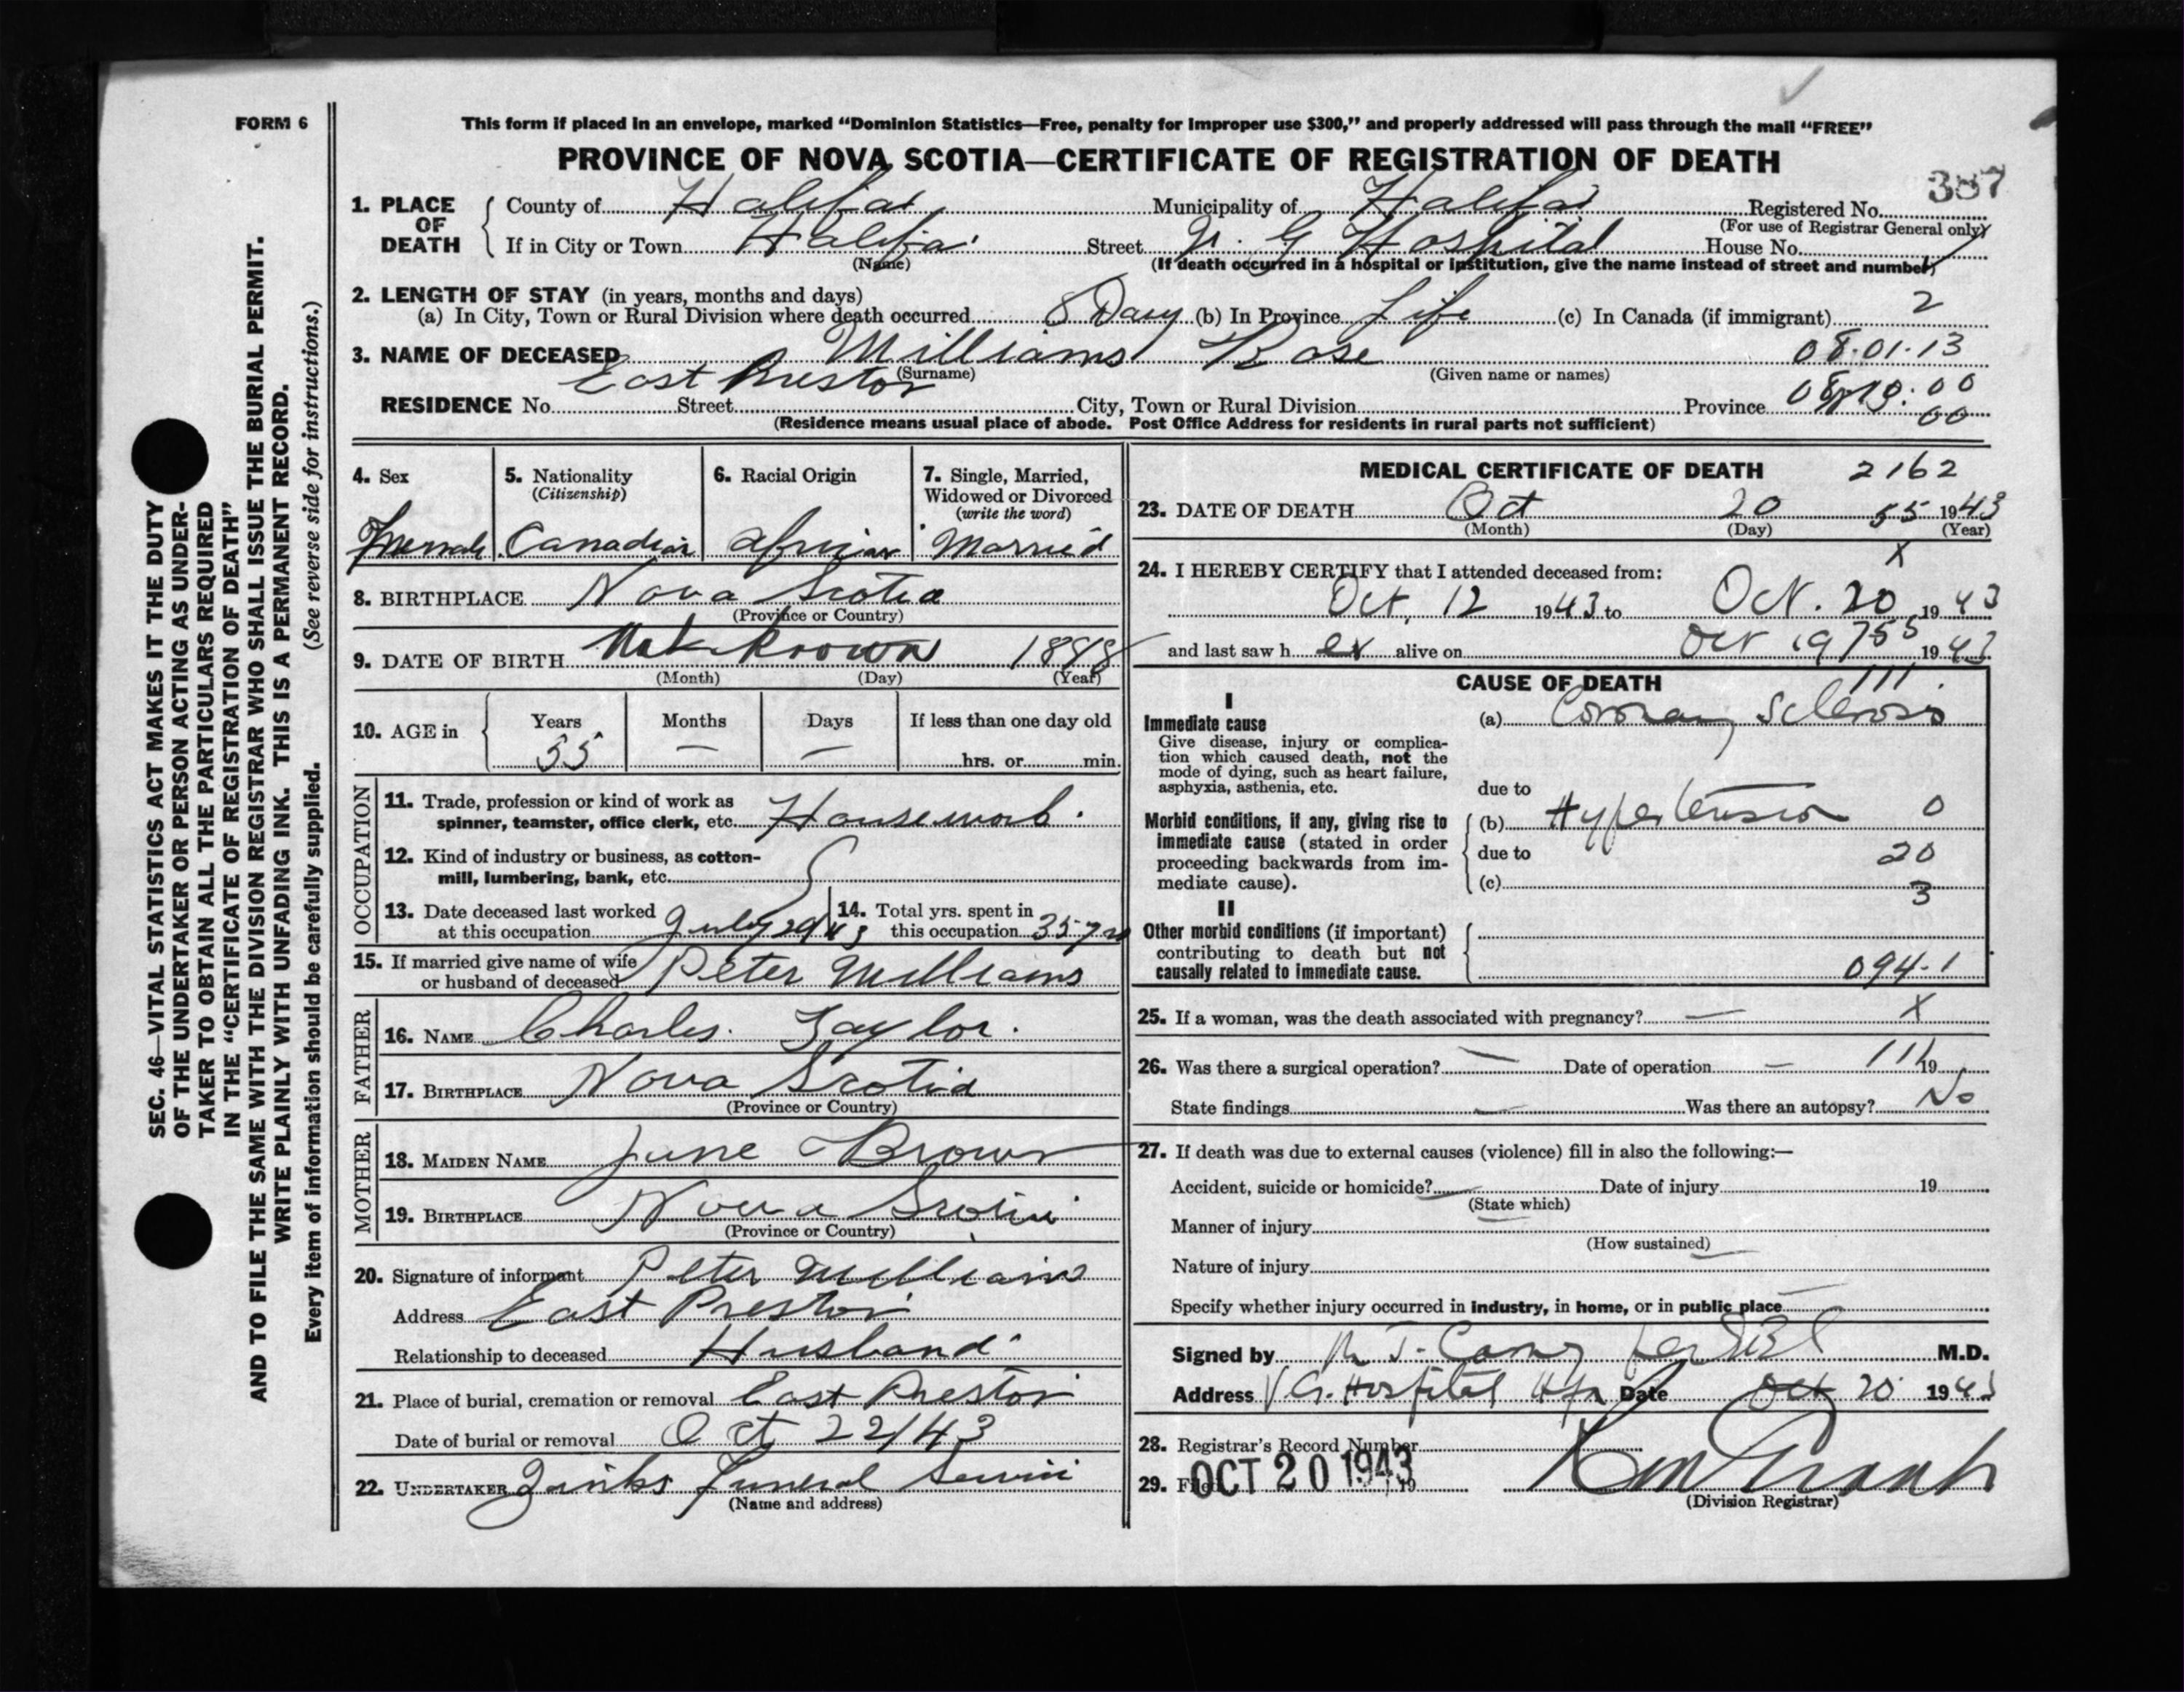 FORM 6
This form if placed in an envelope, marked “Dominion Statistics—Free, penalty for improper use $300,” and properly addressed will pass through the mail “FREE”
PROVINCE OF NOVA SCOTIA—CERTIFICATE OF REGISTRATION OF DEATH
387
1. PLACE OF DEATH County of Halifax Municipality of Halifax Registered No.
(For use of Registrar General only)
If in City or Town Halifax Street V. G Hospital House No.
(Name) (If death occurred in a hospital or institution, give the name instead of street and number)
2. LENGTH OF STAY (in years, months and days)
(a) In City, Town or Rural Division where death occurred 8 Days (b) In Province Life (c) In Canada (if immigrant) 2
3. NAME OF DECEASED Williams Rose 08.01.13
(Surname) (Given name or names)
East Preston
RESIDENCE No. Street City, Town or Rural Division Province 00
00
(Residence means usual place of abode. Post Office Address for residents in rural parts not sufficient)
4. Sex 5. Nationality (Citizenship) 6. Racial Origin 7. Single, Married, Widowed or Divorced (write the word)
Female Canadian African Married
8. BIRTHPLACE Nova Scotia
(Province or Country)
9. DATE OF BIRTH Not Known 1898
(Month) (Day) (Year)
10. AGE in Years Months Days If less than one day old
55 — — hrs. or min.
OCCUPATION
11. Trade, profession or kind of work as
spinner, teamster, office clerk, etc. Housework
12. Kind of industry or business, as cotton-
mill, lumbering, bank, etc.
13. Date deceased last worked
at this occupation July 29/43
14. Total yrs. spent in
this occupation 35 yrs
15. If married give name of wife
or husband of deceased Peter Williams
FATHER
16. NAME Charles Taylor
17. BIRTHPLACE Nova Scotia
(Province or Country)
MOTHER
18. MAIDEN NAME June Brown
19. BIRTHPLACE Nova Scotia
(Province or Country)
20. Signature of informant Peter Williams
Address East Preston
Relationship to deceased Husband
21. Place of burial, cremation or removal East Preston
Date of burial or removal Oct 22/43
22. UNDERTAKER Zinks Funeral Service
(Name and address)
MEDICAL CERTIFICATE OF DEATH 2162
23. DATE OF DEATH Oct 20 55 1943
(Month) (Day) (Year)
X
24. I HEREBY CERTIFY that I attended deceased from:
Oct. 12 1943 to Oct. 20 1943
and last saw h er alive on Oct 19 1943
CAUSE OF DEATH 111
I
Immediate cause
Give disease, injury or complica-
tion which caused death, not the
mode of dying, such as heart failure,
asphyxia, asthenia, etc.
(a) Coronary Sclerosis
due to
Morbid conditions, if any, giving rise to
immediate cause (stated in order
proceeding backwards from im-
mediate cause).
(b) Hypertension 0
due to 20
(c) 3
II
Other morbid conditions (if important)
contributing to death but not
causally related to immediate cause.
094-1
25. If a woman, was the death associated with pregnancy? — X
26. Was there a surgical operation? — Date of operation — 19
State findings — Was there an autopsy? No
27. If death was due to external causes (violence) fill in also the following:—
Accident, suicide or homicide? Date of injury 19
(State which)
Manner of injury
(How sustained)
Nature of injury
Specify whether injury occurred in industry, in home, or in public place
Signed by M.D.
Address V.G. Hospital Hfx Date Oct 20 1943
28. Registrar's Record Number
29. Filed OCT 20 1943 19
(Division Registrar)
SEC. 46—VITAL STATISTICS ACT MAKES IT THE DUTY
OF THE UNDERTAKER OR PERSON ACTING AS UNDER-
TAKER TO OBTAIN ALL THE PARTICULARS REQUIRED
IN THE “CERTIFICATE OF REGISTRATION OF DEATH”
AND TO FILE THE SAME WITH THE DIVISION REGISTRAR WHO SHALL ISSUE THE BURIAL PERMIT.
WRITE PLAINLY WITH UNFADING INK. THIS IS A PERMANENT RECORD.
Every item of information should be carefully supplied. (See reverse side for instructions.)